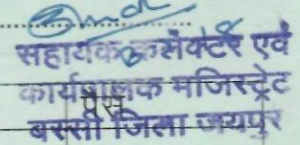 सहायक कलेक्टर एवं
कार्यपालक मजिस्ट्रेट
बस्सी जिला जयपुर